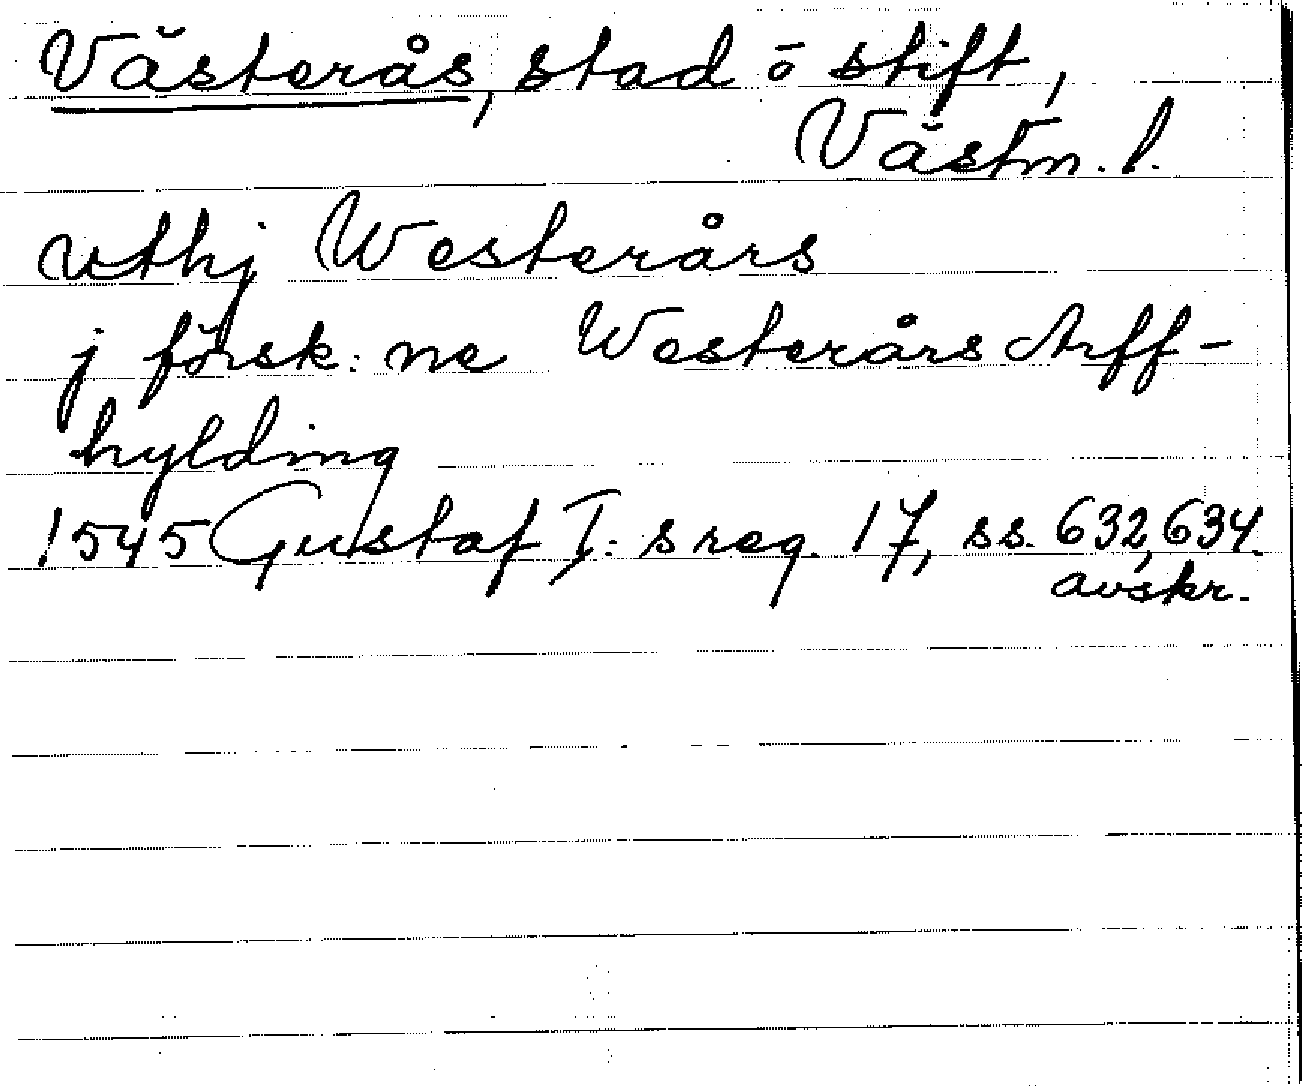 Västerås, stad o stift,
Västm. l.
vthj Westerårs
j försk: ne Westerårs Arff-
hylding
1545 Gustaf I: s reg. 17, ss. 632, 634.
avskr.